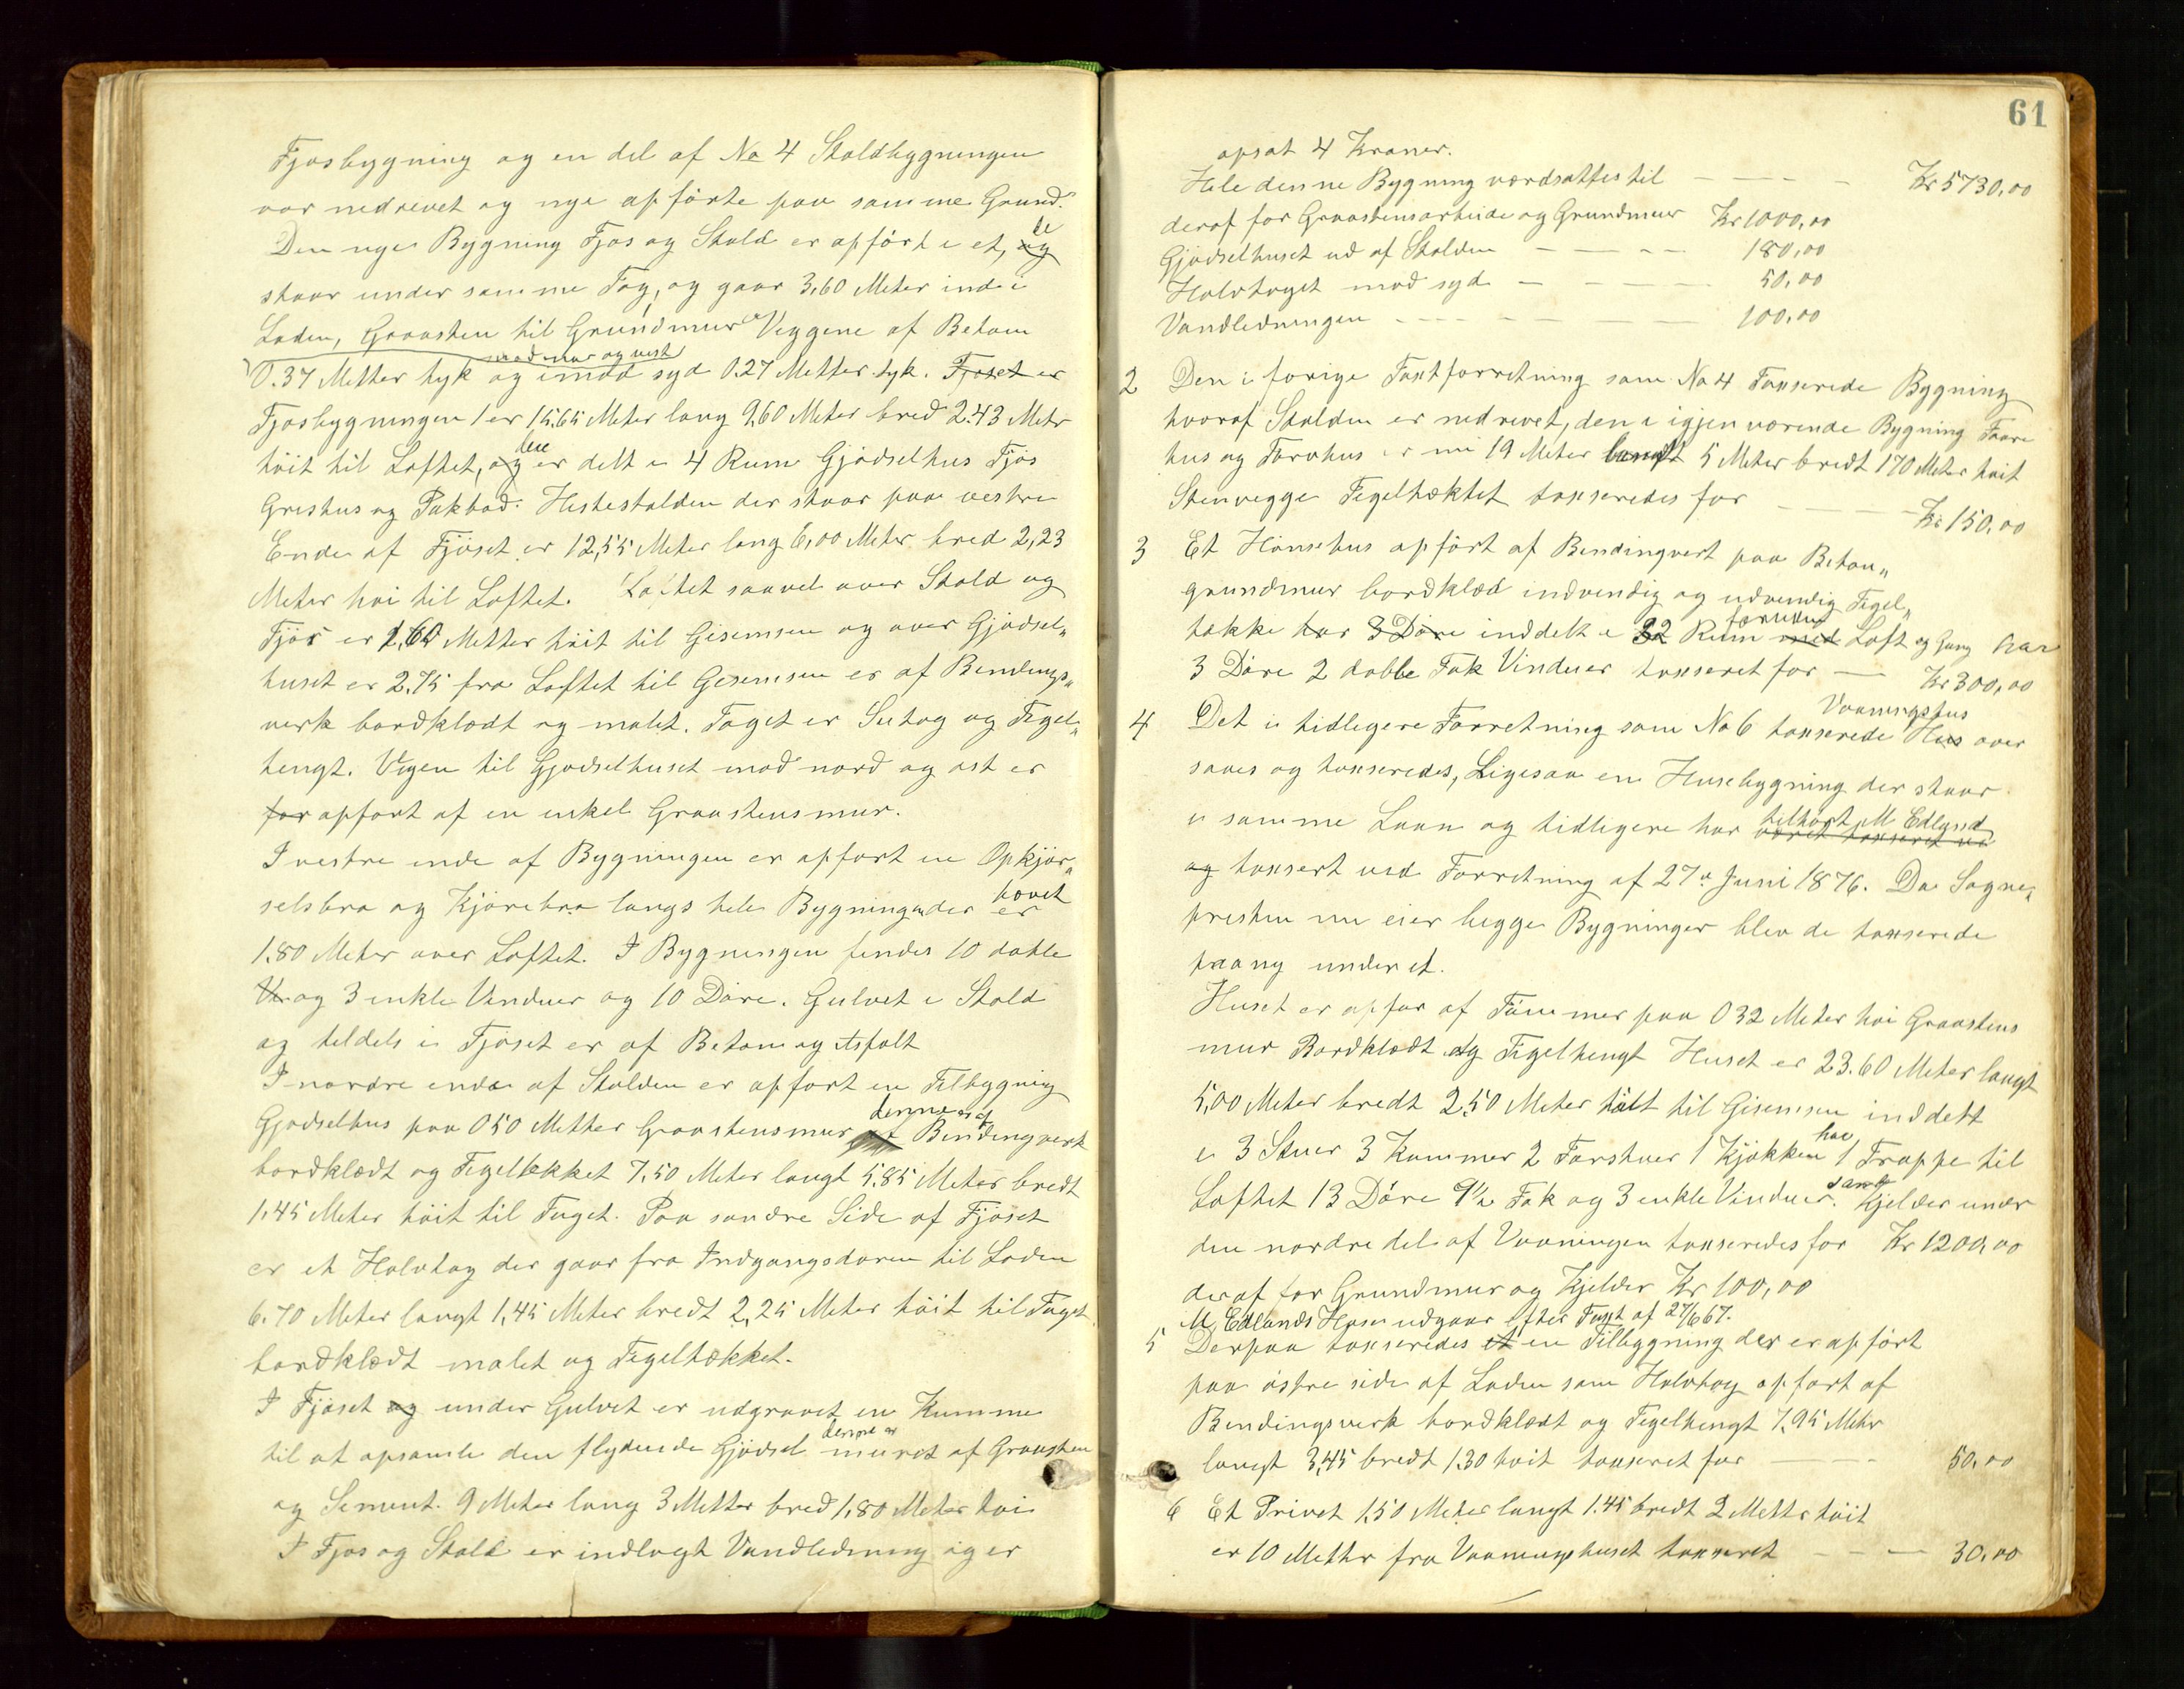 Fjosbygning og en del af No 4 Staldbygningen
var nedrevet og nye opførte paa samme Grund.
Den nye Bygning Fjos og Stald er opført i et, og de
staar under samme Tag, og gaar 3,60 Meter ind i
Laden, Graasten til Grundmur Veggene af Betom
0.37 Metter tyk og imod syd 0.27 Metter tyk. Fjoset er
mod nor og vest
Fjosbygningen 1 er 15,65 Meter lang 9,60 Meter bred 2.43 Metr
høit til Loftet, og er delt i 4 Rum Gjødselhus Fjøs
Grishus og Pakbod. Hestestalden der staar paa vestre
Ende af Fjøset er 12,55 Meter lang 6,00 Meter bred 2,23
Meter høi til Loftet. Loftet saavel over Stald og
Fjøs er 1,60 Metter høit til Gisemsen og over Gjødsel„
huset er 2,75 fra Loftet til Gesemsen er af Bendings„
verk bordklædt og malet. Taget er Sutag og Tegel„
hengt. Vegen til Gjødselhuset mod nord og øst er
for opført af en enkel Graastensmur.
I vestre ende af Bygningen er opført en Opkjør„
selsbro og Kjørebro langs hele Bygningen der er hovet
1.80 Meter over Loftet. I Bygningen findes 10 doble
Ve og 3 enkle Vinduer og 10 Døre. Gulvet i Stald
og teldels i Fjøset er af Betom og Asfalt
I nordre ende af Stalden er opført en Tilbygnig
Gjødselhus paa 0 50 Metter Graastensmur af denne er af Bendingverk
bordklædt og Tegeltekket 7,50 Meter langt 5,85 Meter bredt
1,45 Meter høit til Taget. Paa søndre Side af Fjøset
er et Halvtag der gaar fra Indgangsdøren til Laden
6.70 Meter langt 1,45 Meter bredt 2,25 Meter høit til Taget
bordklædt malet og Tegeltækket.
I Fjøset og under Gulvet er udgravet en Kumme
til at opsamle den flydende Gjødsel denne er muret af Graasten
og Sement. 9 Meter lang 3 Metter bred 1,80 Meter høi
I Fjøs og Stald er indlagt Vandledning og er
61
opsat 4 Kraner.
Hele denne Bygning værdsattes til — Kr 5730,00
deraf for Graastensarbeide og Grundmur Kr 1000,00
Gjødselhuset ud af Stalden — 180,00
Halvtaget mod syd — 50,00
Vandledningen — 100,00
2 Den i forige Taxtforretning som No 4 Taxserede Bygning
hvoraf Stalden er nedrevet, den i igjenværende Bygning Faare
hus og Torvhus er nu 19 Meter langt 5 Meter bredt 170 Meter høit
Stenvegge Tegeltæktet taxseredes for — Kr 150,00
3 Et Hønsehus opført af Bendingverk paa Beton„
grundmur bordklæd indvendig og udvendig Tegel„
tække har 3 Døre inddelt i 2 Rum med foruden Loft og Gang har
3 Døre 2 doble Fak Vinduer taxseret for — Kr 300,00
4 Det i tidligere Forretning som No 6 taxserede Hus Vaaningshus over
saaes og taxseredes, Ligesaa en Husebygning der staar
i samme Laan og tidligere har været taxseret ved tilhørt M Edland
og taxsert ved Forretning af 27de Juni 1876. Da Sogne„
presten nu eier begge Bygninger blev de taxserede
paa ny under et.
Huset er opfør af Tømmer paa 0 32 Meter høi Graastens
mur Bordklædt og Tegelhengt Huset er 23.60 Meter langt
5,00 Meter bredt 2,50 Meter høit til Gisemsen inddelt
i 3 Stuer 3 Kammer 2 Forstuer 1 Kjøkken har 1 Trappe til
Loftet 13 Døre 9½ Fak og 3 enkle Vinduer. samt Kjelder under
den nordre del af Vaaningen taxseredes for Kr 1200,00
deraf for Grundmur og Kjelder Kr 100,00
M Edlands Huse udgaar efter Taxt af 27/6 67.
5 Derpaa taxseredes et en Tilbygning der er opført
paa østre side af Laden som Halvtag opført af
Bendingsverk bordklædt og Tegelhengt 7,95 Metr
langt 3,45 bredt 1.30 høit taxseret for — 50,00
6 Et Privet 1,50 Meter langt 1.45 bredt 2 Metter høit
er 10 Metter fra Vaaningshuset taxseret — 30,00